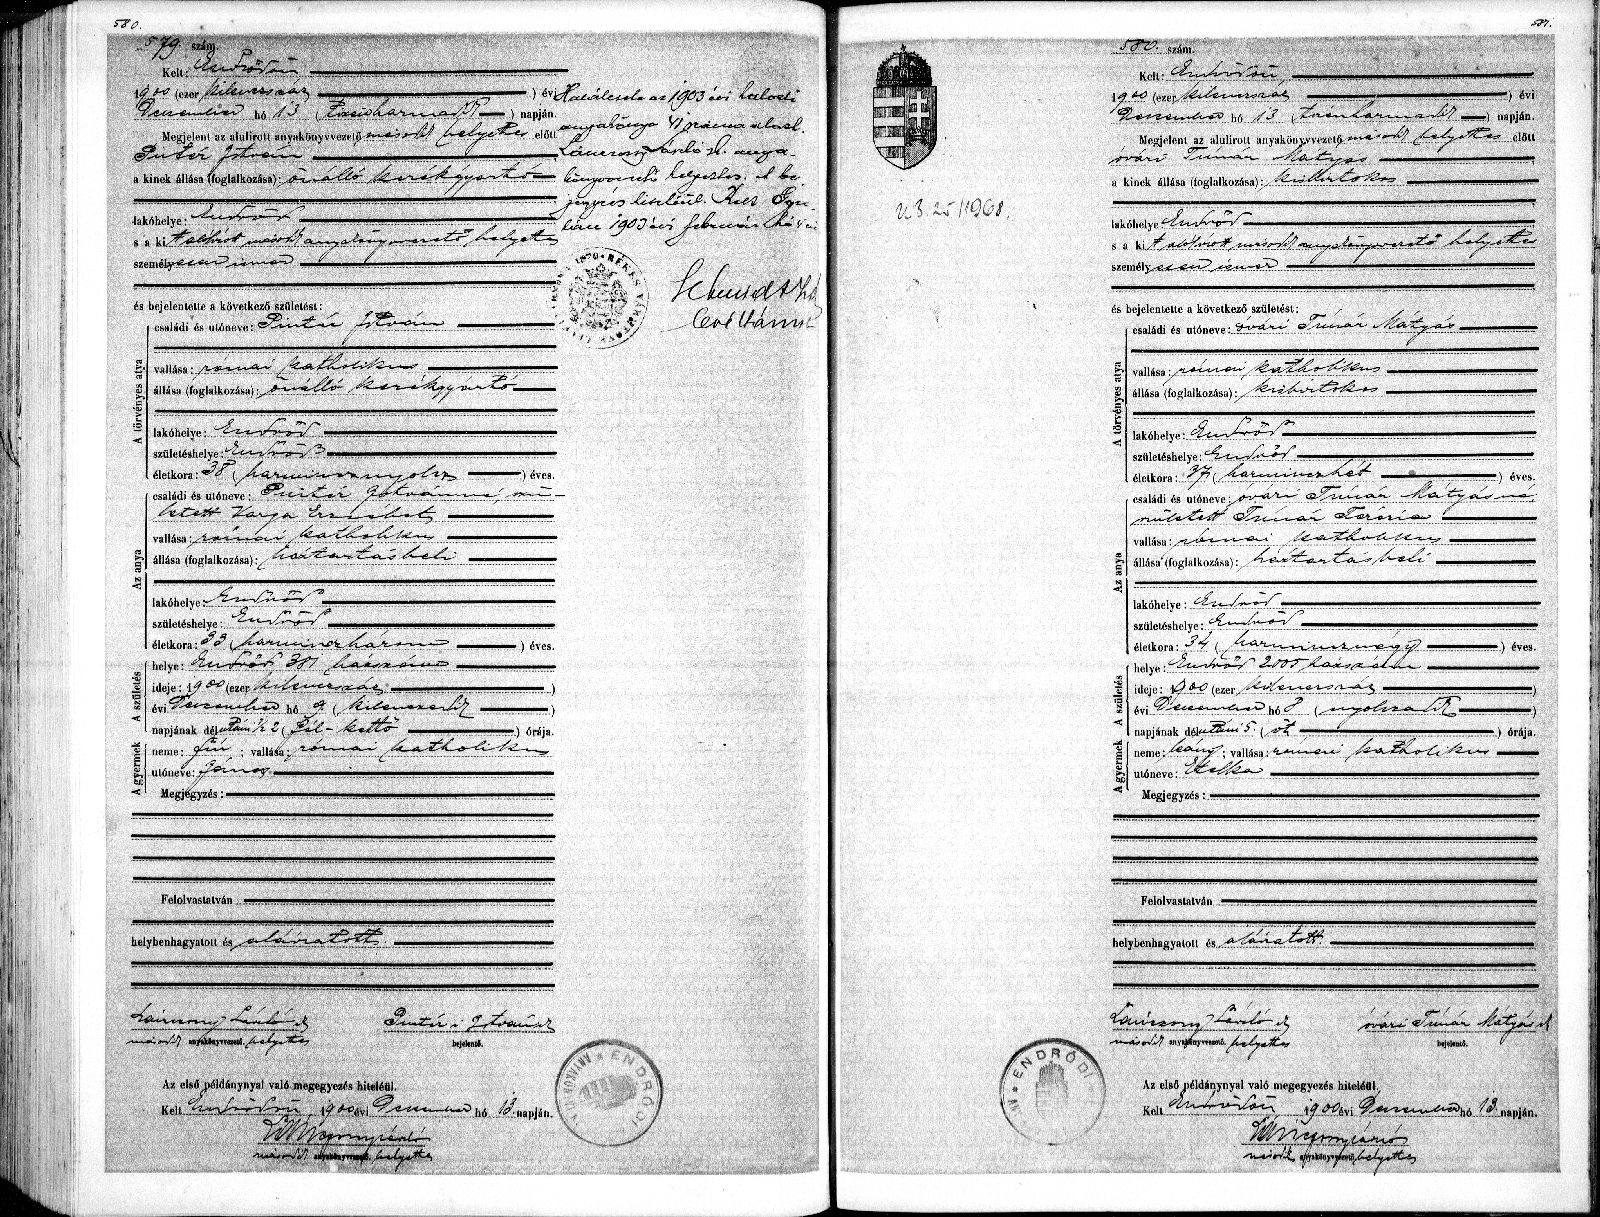 580.
579. szám.
Kelt: Endrődön
1900 (ezer kilencszáz) évi
December hó 13 (tizenharmadik) napján.
Megjelent az alulirott anyakönyvvezető második helyettes előtt
Pintér István
a kinek állása (foglalkozása): önálló kerékgyártó
lakóhelye: Endrőd
s a kit alólirott második anyakönyvvezető helyettes
személyesen ismer
és bejelentette a következő születést:
A törvényes atya
családi és utóneve: Pintér István
vallása: római katholikus
állása (foglalkozása): önálló kerékgyártó
lakóhelye: Endrőd
születéshelye: Endrőd
életkora: 38 (harmincznyolcz) éves.
Az anya
családi és utóneve: Pintér Istvánné, szü-
letett Varga Erzsébet
vallása: római katholikus
állása (foglalkozása): háztartásbeli
lakóhelye: Endrőd
születéshelye: Endrőd
életkora: 33 (harminczhárom) éves.
A születés
helye: Endrőd 381 házszám
ideje: 1900 (ezer kilencszáz)
évi December hó 9 (kilenczedik)
napjának délutáni ½ 2 (fél-kettő) órája.
A gyermek
neme: fiú; vallása: római katholikus
utóneve: János
Megjegyzés:
Felolvastatván
helybenhagyatott és aláiratott
Lánczony László sk
második anyakönyvvezető. helyettes
Pintér István sk
bejelentő.
Az első példánynyal való megegyezés hiteléül.
Kelt Endrődön, 1900 évi December hó 13. napján.
Lánczony László
második anyakönyvvezető, helyettes
ENDRŐDI
az 1903 évi halotti
anyakönyv
László sk. anya-
könyvvezető helyettes. A be-
jegyzés hiteléül. Kelt Gyu-
lán 1903 évi február hó
BÉKÉS
581.
580. szám.
Kelt: Endrődön,
1900 (ezer kilencszáz) évi
December hó 13 (tizenharmadik) napján.
Megjelent az alulirott anyakönyvvezető második helyettes előtt
óvári Timár Mátyás
a kinek állása (foglalkozása): kisbirtokos
lakóhelye Endrőd
s a kit alólirott második anyakönyvvezető helyettes
személyesen ismer
és bejelentette a következő születést:
A törvényes atya
családi és utóneve: óvári Timár Mátyás
vallása: római katholikus
állása (foglalkozása): kisbirtokos
lakóhelye: Endrőd
születéshelye: Endrőd
életkora: 37 (harminczhét) éves.
Az anya
családi és utóneve: óvári Timár Mátyásné
született Timár Terézia
vallása: római katholikus
állása (foglalkozása): háztartásbeli
lakóhelye: Endrőd
születéshelye: Endrőd
életkora: 34 (harmincznégy) éves.
A születés
helye: Endrőd 2005 házszám
ideje: 1900 (ezer kilencszáz)
évi December hó 8 (nyolczadik)
napjának délutáni 5. (öt) órája.
A gyermek
neme: leány; vallása: római katholikus
utóneve: Etelka
Megjegyzés:
Felolvastatván
helybenhagyatott és aláiratott.
Lánczony László sk
második anyakönyvvezető. helyettes
óvári Timár Mátyás sk
bejelentő.
Az első példánynyal való megegyezés hiteléül.
Kelt Endrődön, 1900 évi December hó 13. napján.
Lánczony László
második anyakönyvvezető, helyettes
ENDRŐDI